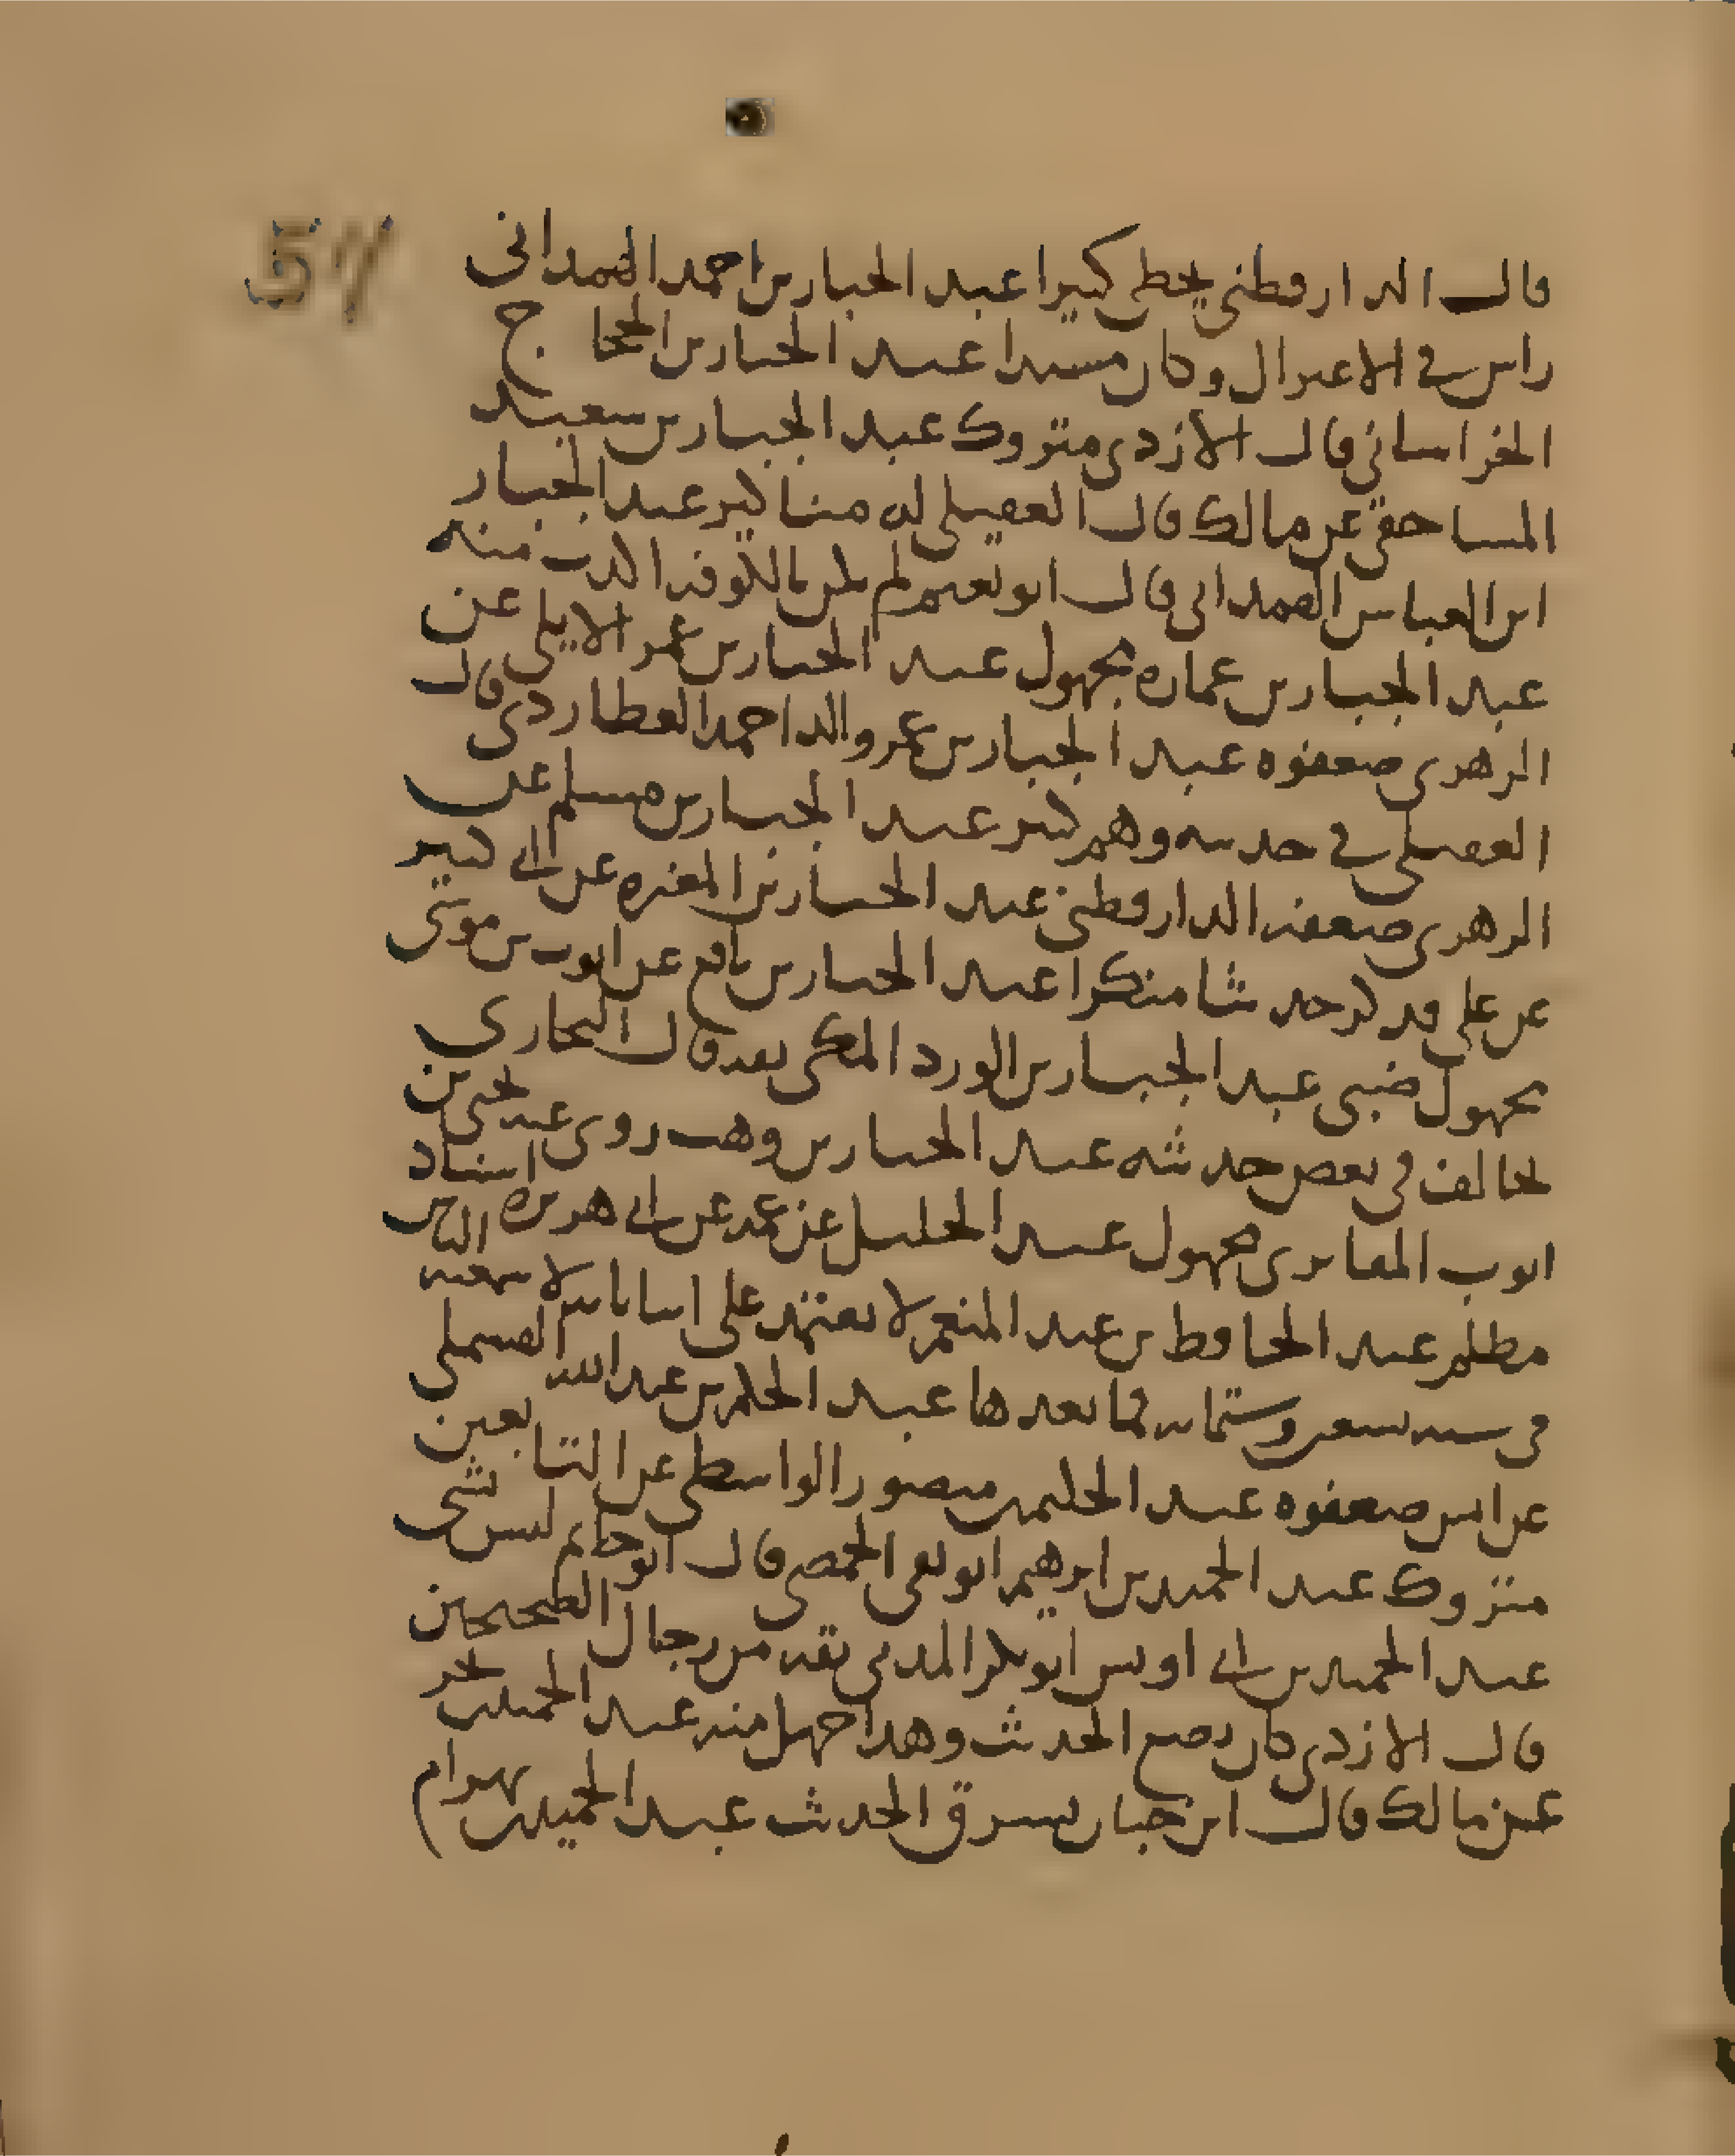 57
قال الدارقطني يخطي كثيرا عبد الجبار بن احمد الهمداني
راس في الاعتزال وكان مسندا عبد الجبار بن الحجاج
الخراساني قال الازدي متروك عبد الجبار بن سعيد
المساحقي عن مالك قال العقيلي له مناكير عبد الجبار
ابن العباس الهمداني قال ابو نعيم لم يكن بالكوفة اكذب منه
عبد الجبار بن عمارة مجهول عبد الجبار بن عمر الايلي عن
الزهري ضعفوه عبد الجبار بن عمر والد احمد العطاردي قال
العقيلي في حديثه وهم كثير عبد الجبار بن مسلم عن
الزهري ضعفه الدارقطني عبد الجبار بن المغيرة عن ابي كثير
عن علي قد ذكر حديثا منكرا عبد الجبار بن نافع عن ايوب بن موسى
مجهول ضبي عبد الجبار بن الورد المكي ثقة قال البخاري
يخالف في بعض حديثه عبد الجبار بن وهب روى عنه يحيى بن
ايوب المقابري مجهول عبد الجليل عن عمه عن ابي هريرة اسناد
مظلم عبد الحافظ بن عبد المنعم لا يعتمد على اثباته لا سمعه
في سنة تسعين وستمائة فما بعدها عبد الحكم بن عبد الله القسملي
عن انس ضعفوه عبد الحليم بن منصور الواسطي عن التابعين
متروك عبد الحميد بن ابرهيم ابو تقي الحمصي قال ابو حاتم ليس بشي
عبد الحميد بن ابي اويس ابو بكر المدني ثقة من رجال الصحيحين
قال الازدي كان يضع الحديث وهذا جهل منه عبد الحميد بن بحر
عن مالك قال ابن حبان يسرق الحديث عبد الحميد بن بهرام